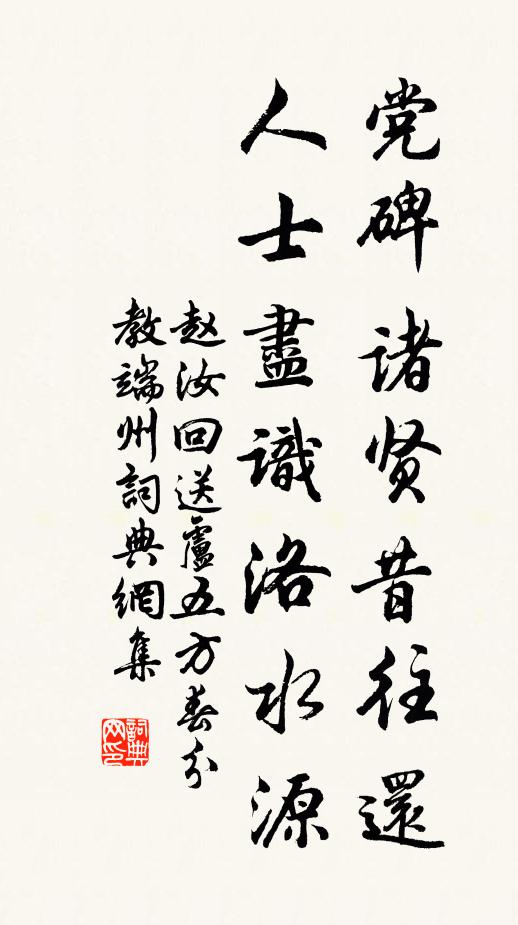 党碑诸贤昔往還
人士盡識洛水源
赵汝回送盧五方春分
教端州詞典網集
詞典网印